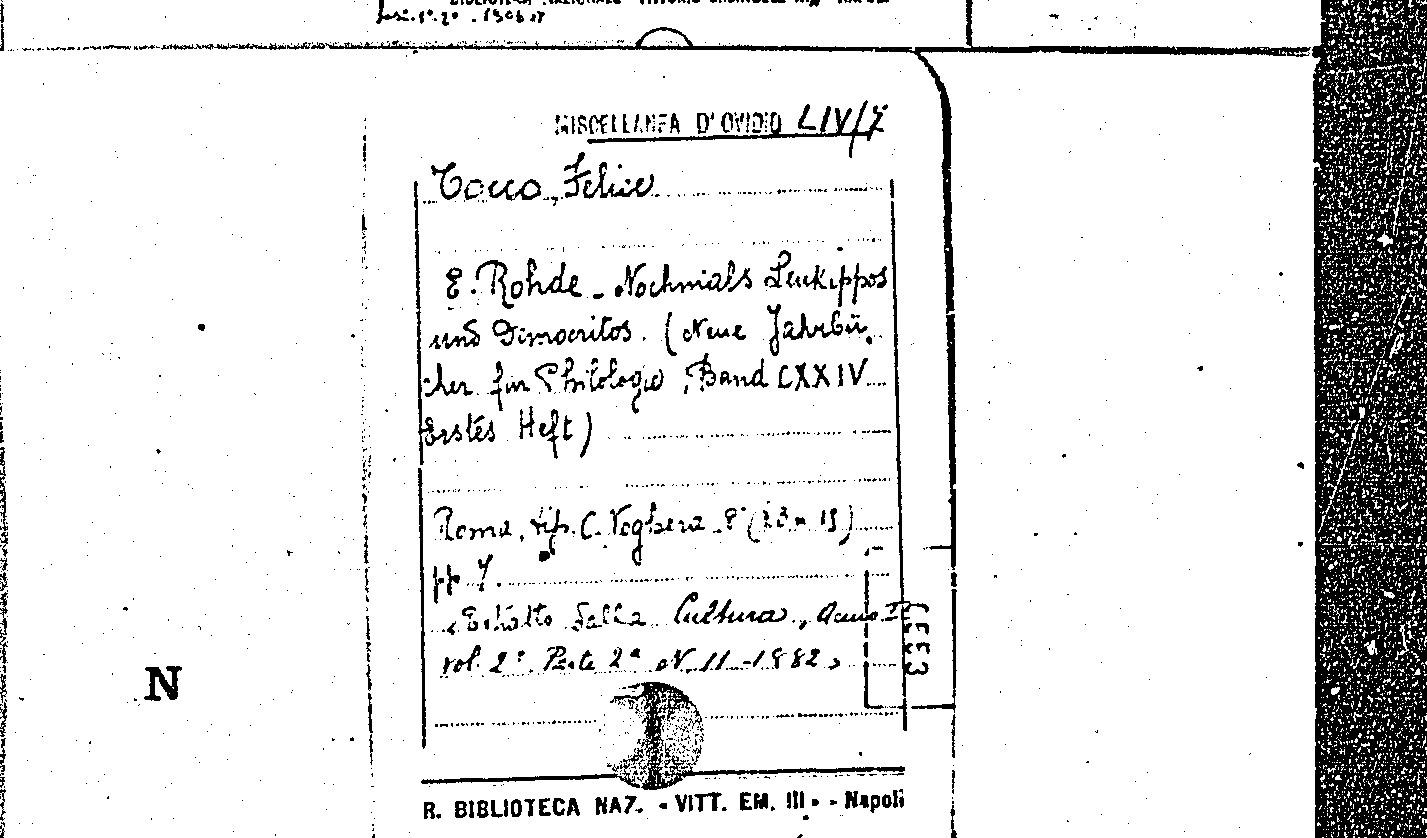 BIBLIOTECA NAZIONALE VITTORIO
MISCELLANEA D'OVIDIO LIV/7
Tocco, Felice
E. Rohde - Nochmals Leukippos
und Dimocritos. (Neue Jahrbü-
cher für Philologie, Band CXXIV
Erstes Heft)
Roma, tip. C. Voghera 8°
pp 7.
"Estratto dalla Cultura, Anno I
vol. 2° Parte 2ª N. 11 - 1882"
N
R. BIBLIOTECA NAZ. "VITT. EM. III" - Napoli